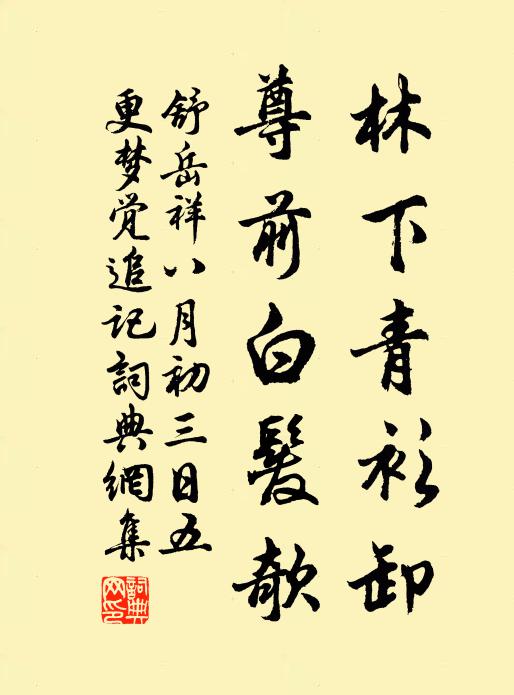 林下青衫卸
尊前白髮欹
舒岳祥八月初三日五
更梦觉追记詞典網集
詞典网印